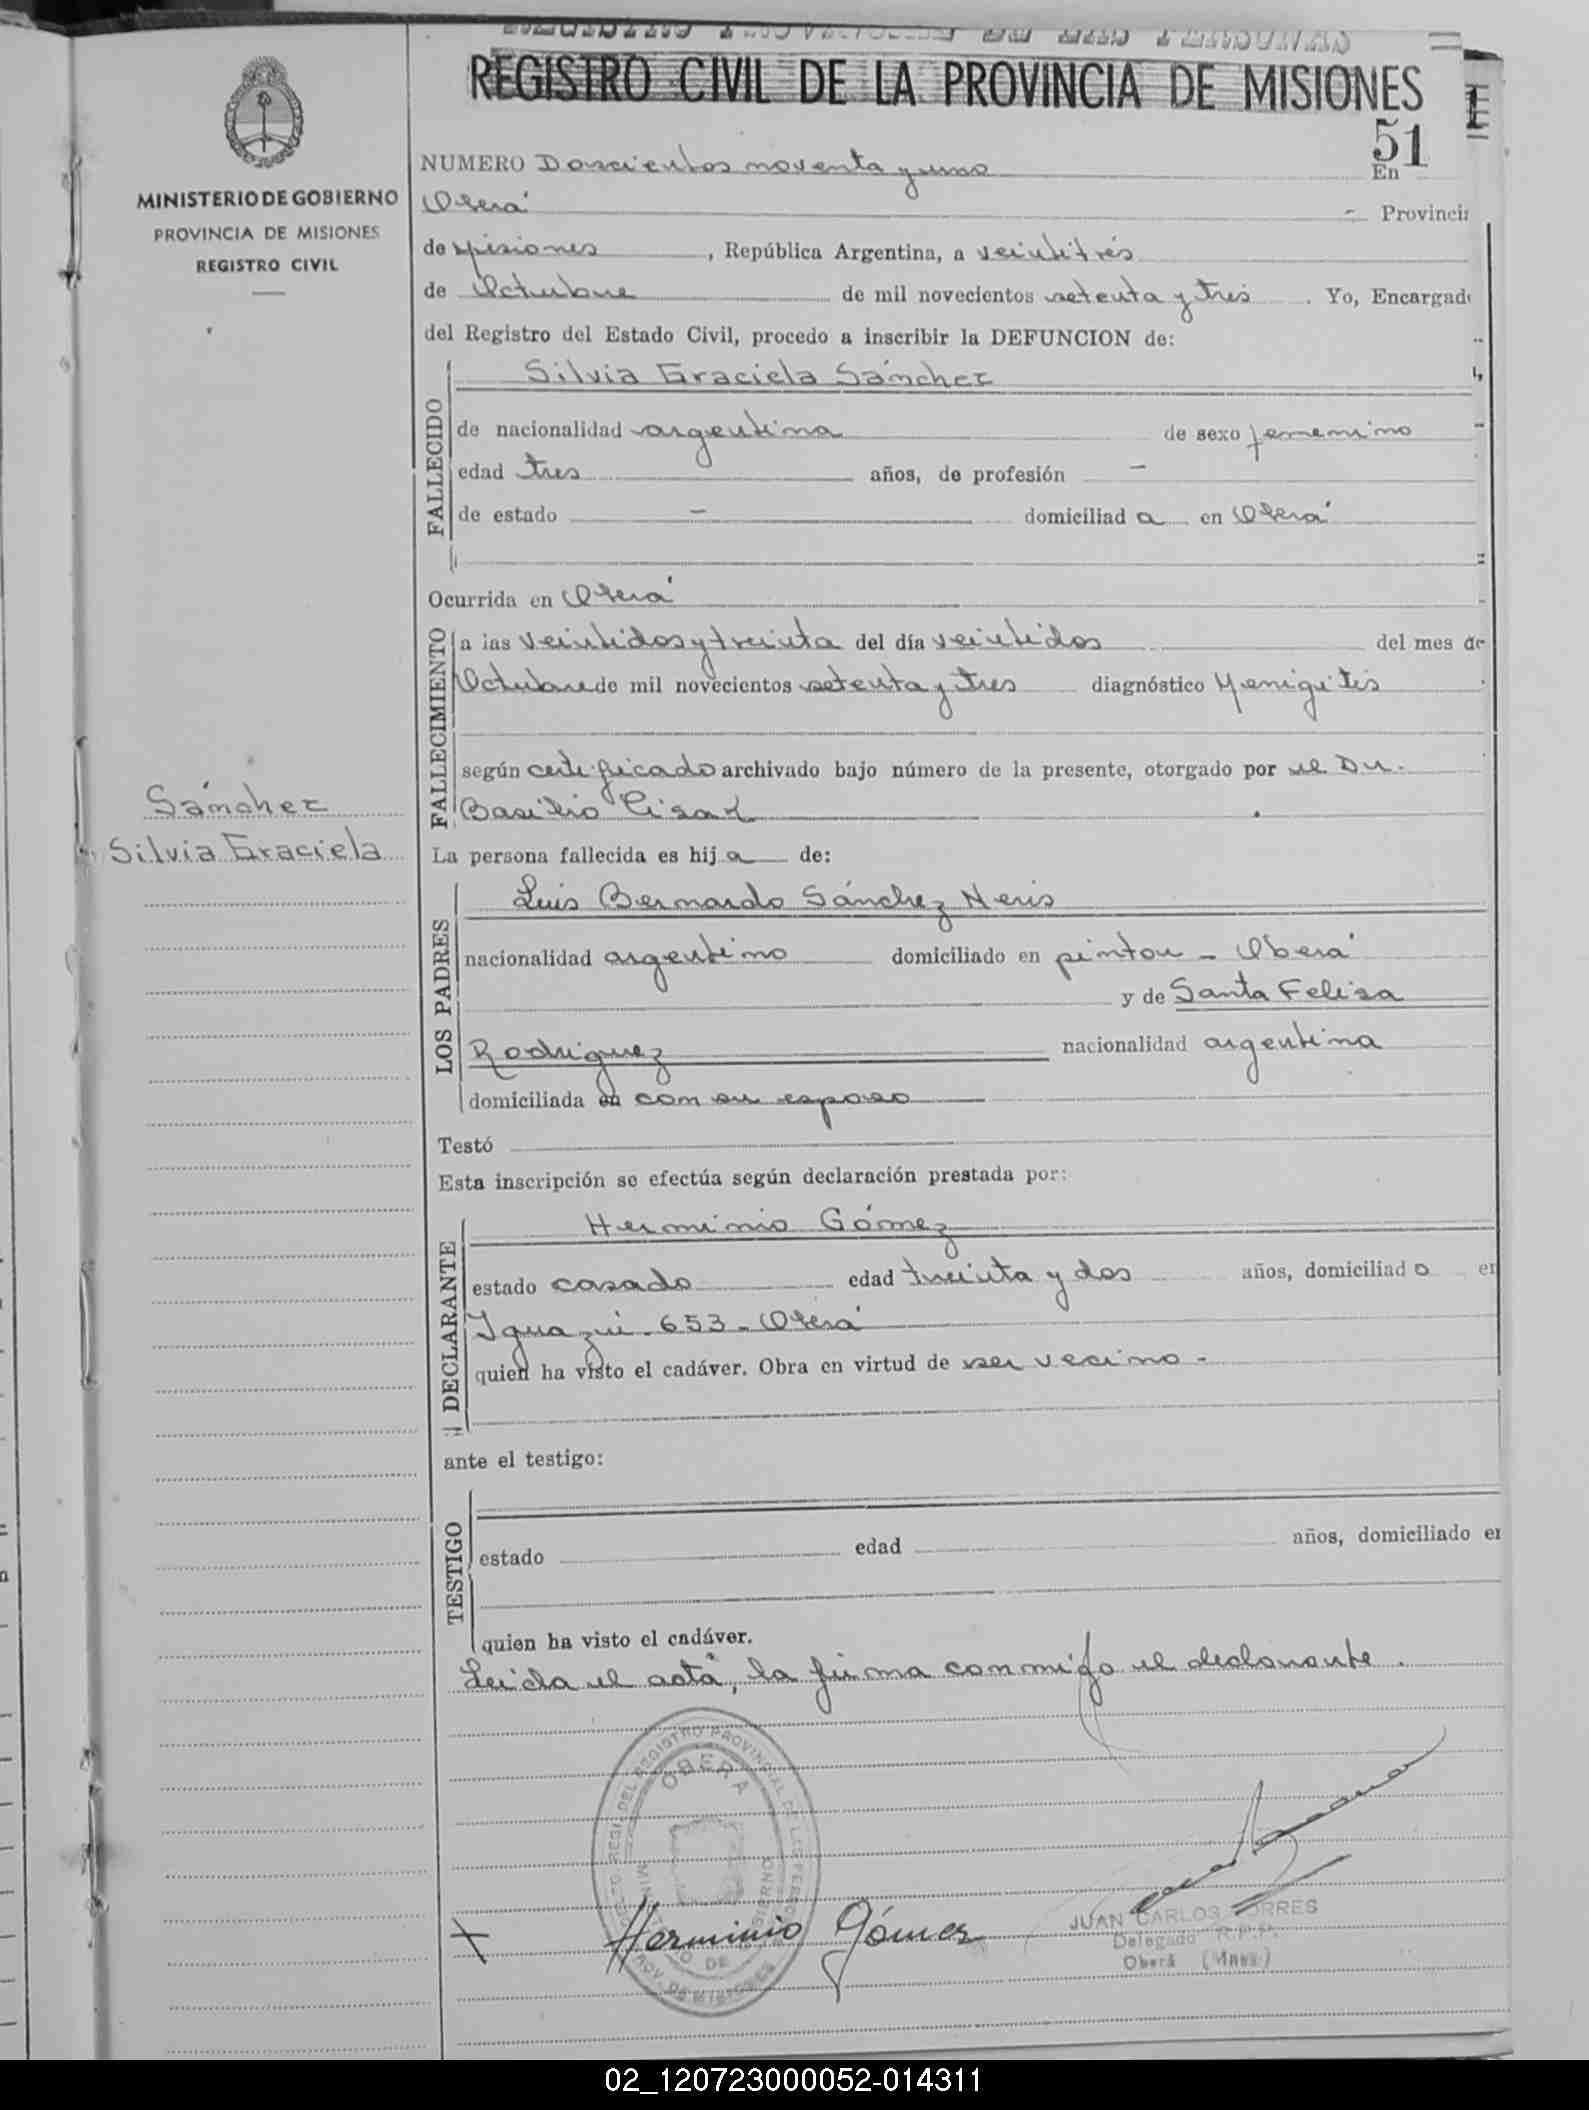 REGISTRO PROVINCIAL DE LAS PERSONAS
REGISTRO CIVIL DE LA PROVINCIA DE MISIONES
51
MINISTERIO DE GOBIERNO
PROVINCIA DE MISIONES
REGISTRO CIVIL
NUMERO Doscientos noventa y uno En
Oberá Provincia
de Misiones, República Argentina, a veintitrés
de Octubre de mil novecientos setenta y tres. Yo, Encargado
del Registro del Estado Civil, procedo a inscribir la DEFUNCION de:
FALLECIDO
Silvia Graciela Sánchez
de nacionalidad argentina de sexo femenino
edad tres años, de profesión -
de estado - domiciliad a en Oberá
Ocurrida en Oberá
FALLECIMIENTO
a las veintidos y treinta del día veintidos del mes de
Octubre de mil novecientos setenta y tres diagnóstico Menigitis
según certificado archivado bajo número de la presente, otorgado por el Dr.
Basilio
Sánchez
Silvia Graciela
La persona fallecida es hij a de:
LOS PADRES
Luis Bernardo Sánchez Neris
nacionalidad argentino domiciliado en pintor - Oberá
y de Santa Feliza
Rodriguez nacionalidad argentina
domiciliada en con su esposo
Testó
Esta inscripción se efectúa según declaración prestada por:
DECLARANTE
Herminio Gómez
estado casado edad treinta y dos años, domiciliad o en
Iguazú - 653 - Oberá
quien ha visto el cadáver. Obra en virtud de ser vecino -
ante el testigo:
TESTIGO
estado edad años, domiciliado en
quien ha visto el cadáver.
Leida el acta, la firma conmigo el declarante.
OBERA
PROV. DE MISIONES
Herminio Gómez
JUAN CARLOS TORRES
Delegado R.P.P.
Oberá (Mnes)
02_120723000052-014311